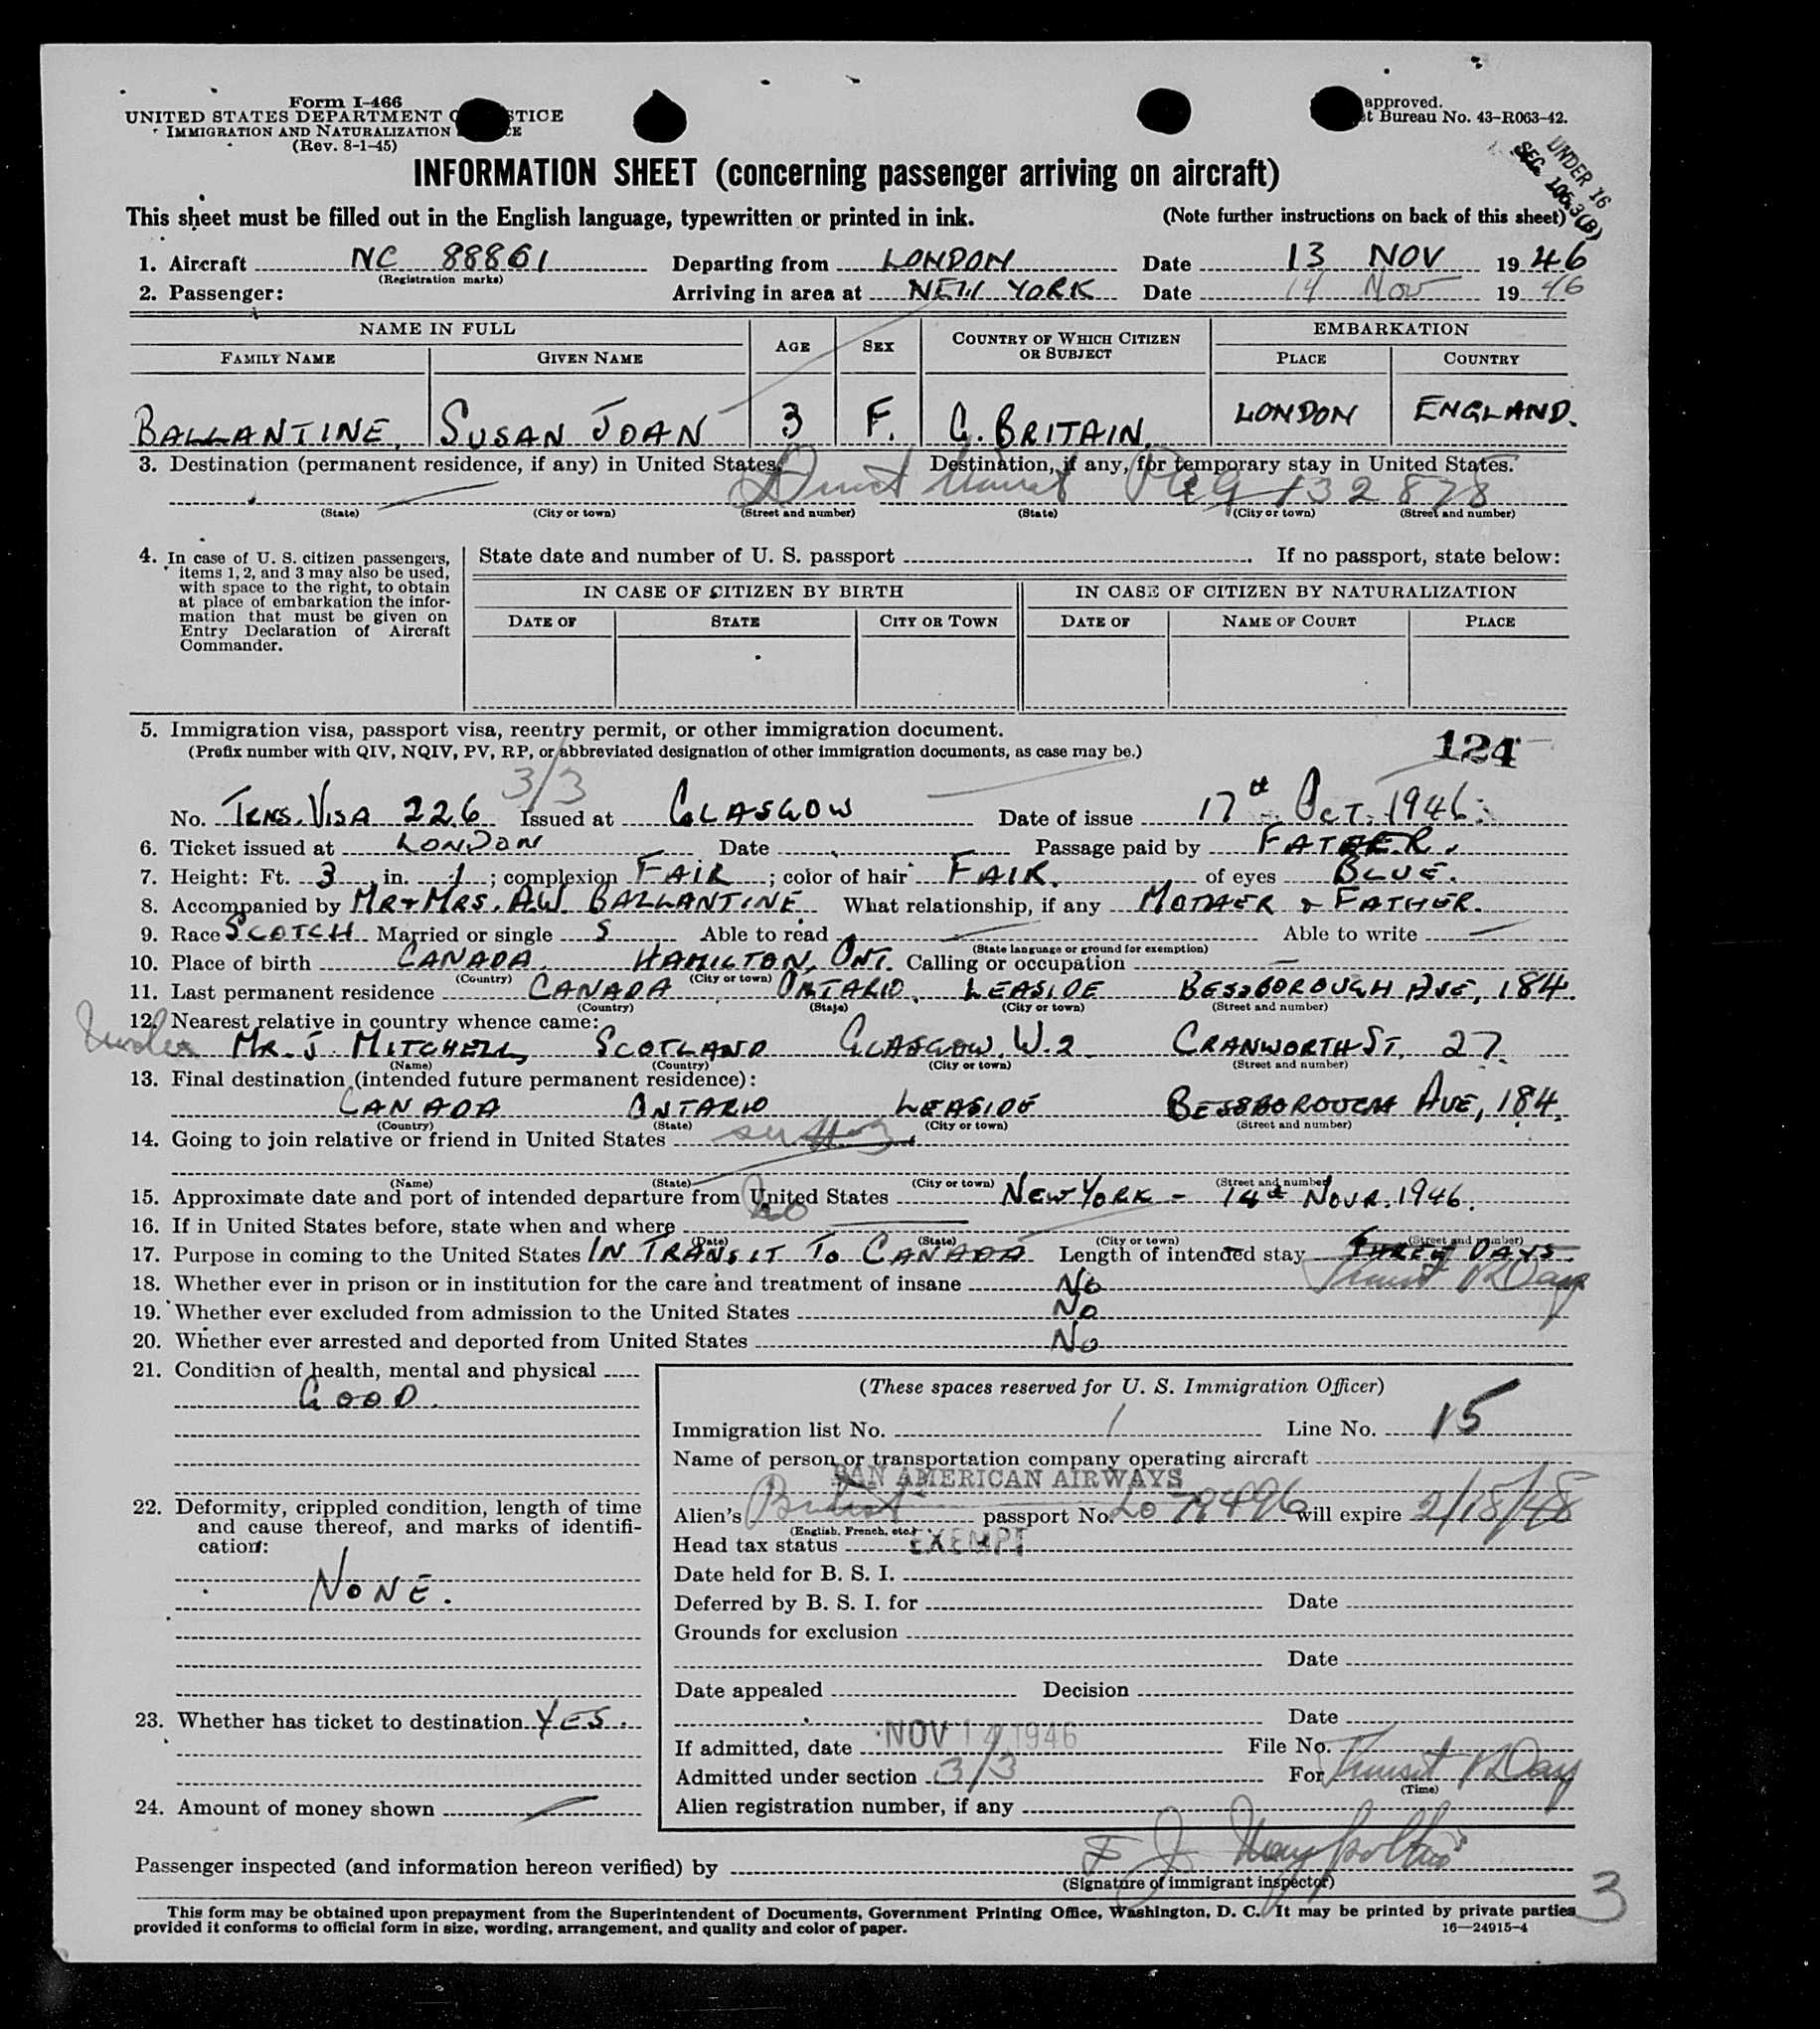 Form I-466
UNITED STATES DEPARTMENT TICE
IMMIGRATION AND NATURALIZATION
(Rev. 8-1-45)
approved.
Bureau No. 43-R063-42.
UNDER 16
SEC. 106.3(B)
INFORMATION SHEET (concerning passenger arriving on aircraft)
This sheet must be filled out in the English language, typewritten or printed in ink. (Note further instructions on back of this sheet)
1. Aircraft NC 88861 Departing from LONDON Date 13 NOV 1946
(Registration marks)
2. Passenger: Arriving in area at NEW YORK Date 14 Nov 1946
NAME IN FULL AGE SEX COUNTRY OF WHICH CITIZEN OR SUBJECT EMBARKATION
FAMILY NAME GIVEN NAME PLACE COUNTRY
BALLANTINE, SUSAN JOAN 3 F. G. BRITAIN. LONDON ENGLAND.
3. Destination (permanent residence, if any) in United States. Destination, if any, for temporary stay in United States.
Direct Transit 132878
(State) (City or town) (Street and number) (State) (City or town) (Street and number)
4. In case of U. S. citizen passengers, items 1, 2, and 3 may also be used, with space to the right, to obtain at place of embarkation the information that must be given on Entry Declaration of Aircraft Commander.
State date and number of U. S. passport If no passport, state below:
IN CASE OF CITIZEN BY BIRTH IN CASE OF CITIZEN BY NATURALIZATION
DATE OF STATE CITY OR TOWN DATE OF NAME OF COURT PLACE
5. Immigration visa, passport visa, reentry permit, or other immigration document.
(Prefix number with QIV, NQIV, PV, RP, or abbreviated designation of other immigration documents, as case may be.)
124
3/3
No. TRNS. VISA 226 Issued at GLASGOW Date of issue 17th OCT. 1946.
6. Ticket issued at LONDON Date Passage paid by FATHER.
7. Height: Ft. 3, in. 1; complexion FAIR; color of hair FAIR. of eyes BLUE.
8. Accompanied by MR & MRS. A.W. BALLANTINE. What relationship, if any MOTHER & FATHER.
9. Race SCOTCH Married or single S Able to read Able to write
(State language or ground for exemption)
10. Place of birth CANADA HAMILTON, ONT. Calling or occupation
(Country) (City or town)
11. Last permanent residence CANADA, ONTARIO, LEASIDE BESSBOROUGH AVE, 184.
(Country) (State) (City or town) (Street and number)
12. Nearest relative in country whence came:
MR. J. MITCHELL, SCOTLAND GLASGOW. W.2. CRANWORTH ST. 27.
(Name) (Country) (City or town) (Street and number)
13. Final destination (intended future permanent residence):
CANADA ONTARIO LEASIDE BESSBOROUGH AVE, 184.
(Country) (State) (City or town) (Street and number)
14. Going to join relative or friend in United States
(Name) (State) (City or town) (Street and number)
15. Approximate date and port of intended departure from United States NEW YORK - 14th NOVR. 1946.
16. If in United States before, state when and where no
(Date) (State) (City or town) (Street and number)
17. Purpose in coming to the United States IN TRANSIT TO CANADA Length of intended stay THREE DAYS
Transit 1 Day
18. Whether ever in prison or in institution for the care and treatment of insane No
19. Whether ever excluded from admission to the United States No
20. Whether ever arrested and deported from United States No
21. Condition of health, mental and physical
GOOD.
22. Deformity, crippled condition, length of time and cause thereof, and marks of identification:
NONE.
23. Whether has ticket to destination YES.
24. Amount of money shown
(These spaces reserved for U. S. Immigration Officer)
Immigration list No. 1 Line No. 15
Name of person or transportation company operating aircraft
PAN AMERICAN AIRWAYS
Alien's British passport No. LO 79496 will expire 2/18/48
(English, French, etc.)
Head tax status EXEMPT
Date held for B. S. I.
Deferred by B. S. I. for Date
Grounds for exclusion
Date
Date appealed Decision
Date
If admitted, date NOV 14 1946 File No.
Admitted under section 3/3 For Transit 1 Day
(Time)
Alien registration number, if any
Passenger inspected (and information hereon verified) by F J
(Signature of immigrant inspector)
3
This form may be obtained upon prepayment from the Superintendent of Documents, Government Printing Office, Washington, D. C. It may be printed by private parties
provided it conforms to official form in size, wording, arrangement, and quality and color of paper. 16—24915-4